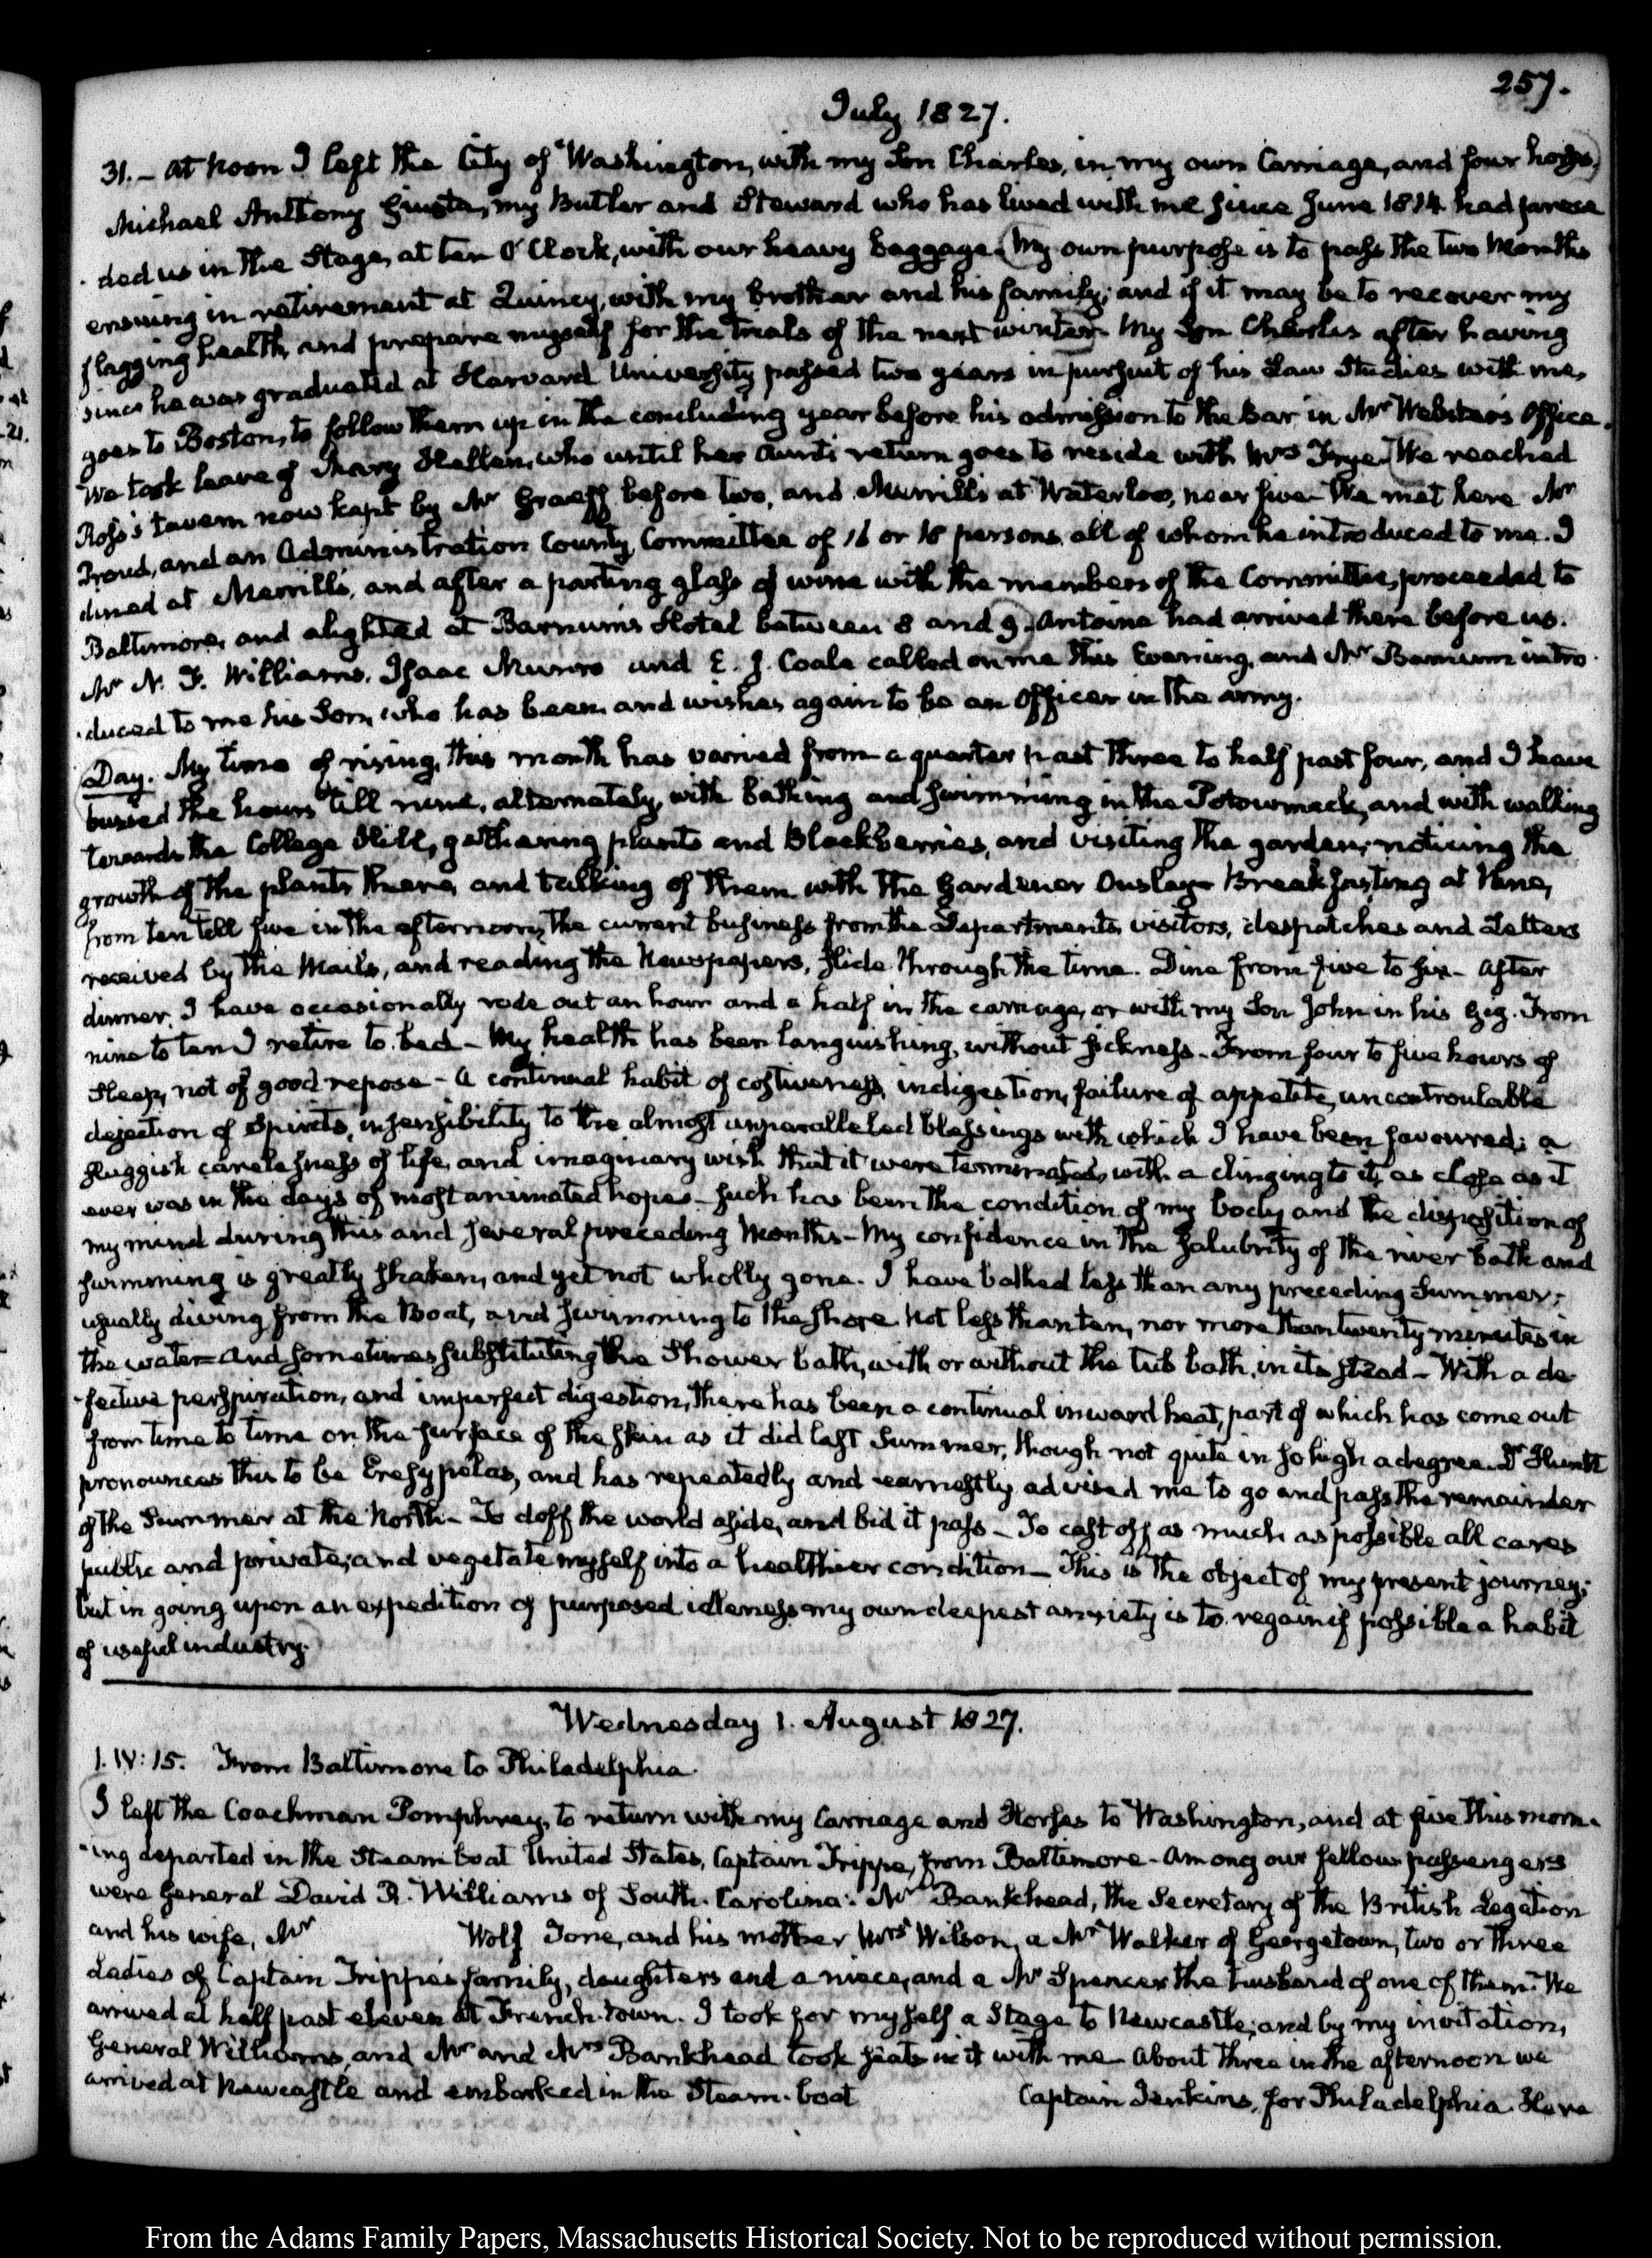 257.
July 1827.
31. – At noon I left the City of Washington, with my Son Charles, in my own Carriage, and four horses,
Michael Anthony Giusta, my Butler and Steward who has lived with me since June 1814 had prece
ded us in the Stage, at ten O'Clock, with our heavy baggage. My own purpose is to pass the two Months
ensuing in retirement at Quincy, with my brother and his family; and if it may be to recover my
flagging health, and prepare myself for the trials of the next winter. My Son Charles after having
since he was graduated at Harvard University passed two years in pursuit of his Law Studies with me,
goes to Boston, to follow them up in the concluding year before his admission to the Bar in Mr Webster's Office.
We took leave of Mary Hellen, who until her Aunt's return goes to reside with Mrs Frye. We reached
Ross's tavern now kept by Mr Graeff before two, and Merrill's at Waterloo, near five. We met here Mr
Proud, and an Administration County Committee of 16 or 18 persons all of whom he introduced to me. I
dined at Merrill's, and after a parting glass of wine with the members of the Committee, proceeded to
Baltimore, and alighted at Barnum's Hotel between 8 and 9. Antoine had arrived there before us.
Mr N. F. Williams, Isaac Munro and E. J. Coale called on me this Evening, and Mr Barnum intro
duced to me his Son, who has been and wishes again to be an Officer in the army.
Day. My time of rising, this month has varied from a quarter past three to half past four, and I have
bussed the hours till nine, alternately, with bathing and swimming in the Potowmack, and with walking
towards the College Hill, gathering plants and Blackberries, and visiting the garden; noticing the
growth of the plants there, and talking of them with the Gardener Ousley. Breakfasting at Nine,
from ten till five in the afternoon, the current business from the Departments, visitors, despatches and Letters
received by the Mails, and reading the Newspapers, slide through the time. Dine from five to six – After
dinner I have occasionally rode out an hour and a half in the carriage, or with my Son John in his Gig. From
nine to ten I retire to bed – My health has been languishing, without sickness. From four to five hours of
Sleep, not of good repose – A continual habit of costiveness, indigestion, failure of appetite, uncontroulable
dejection of Spirits, insensibility to the almost unparalleled blessings with which I have been favoured; a
sluggish carelesness of life, and imaginary wish that it were terminated, with a clinging to it, as close as it
ever was in the days of most animated hopes – Such has been the condition of my body and the disposition of
my mind during this and several preceding Months – My confidence in the Salubrity of the river bath and
swimming is greatly shaken, and yet not wholly gone. I have bathed less than any preceding Summer;
usually diving from the Boat, and swimming to the shore. Not less than ten, nor more than twenty minutes in
the water – And sometimes substituting the Shower bath, with or without the tub bath, in its stead – With a de
-fective perspiration, and imperfect digestion, there has been a continual inward heat, part of which has come out
from time to time on the surface of the skin as it did last Summer, though not quite in so high a degree. Dr Huntt
pronounces this to be Eresypelas, and has repeatedly and earnestly advised me to go and pass the remainder
of the Summer at the North – To doff the world aside, and bid it pass – To cast off as much as possible all cares
public and private; and vegetate myself into a healthier condition – This is the object of my present journey;
but in going upon an expedition of purposed idleness my own deepest anxiety is to regain if possible a habit
of useful industry.
Wednesday 1. August 1827.
1. IV:15. From Baltimore to Philadelphia.
I left the Coachman Pomphrey, to return with my Carriage and Horses to Washington, and at five this morn
-ing departed in the Steam boat United States, Captain Trippe, from Baltimore – Among our fellow passengers
were General David R. Williams of South Carolina: Mr Bankhead, the Secretary of the British Legation
and his wife, Mr Wolf Tone, and his mother Mrs Wilson, a Mr Walker of Georgetown, two or three
Ladies of Captain Trippe's family, daughters and a niece, and a Mr Spencer the husband of one of them. We
arrived at half past eleven at French-town. I took for myself a Stage to Newcastle; and by my invitation,
General Williams, and Mr and Mrs Bankhead took seats in it with me. About three in the afternoon we
arrived at Newcastle and embarked in the Steam-boat Captain Jenkins, for Philadelphia. Here
From the Adams Family Papers, Massachusetts Historical Society. Not to be reproduced without permission.